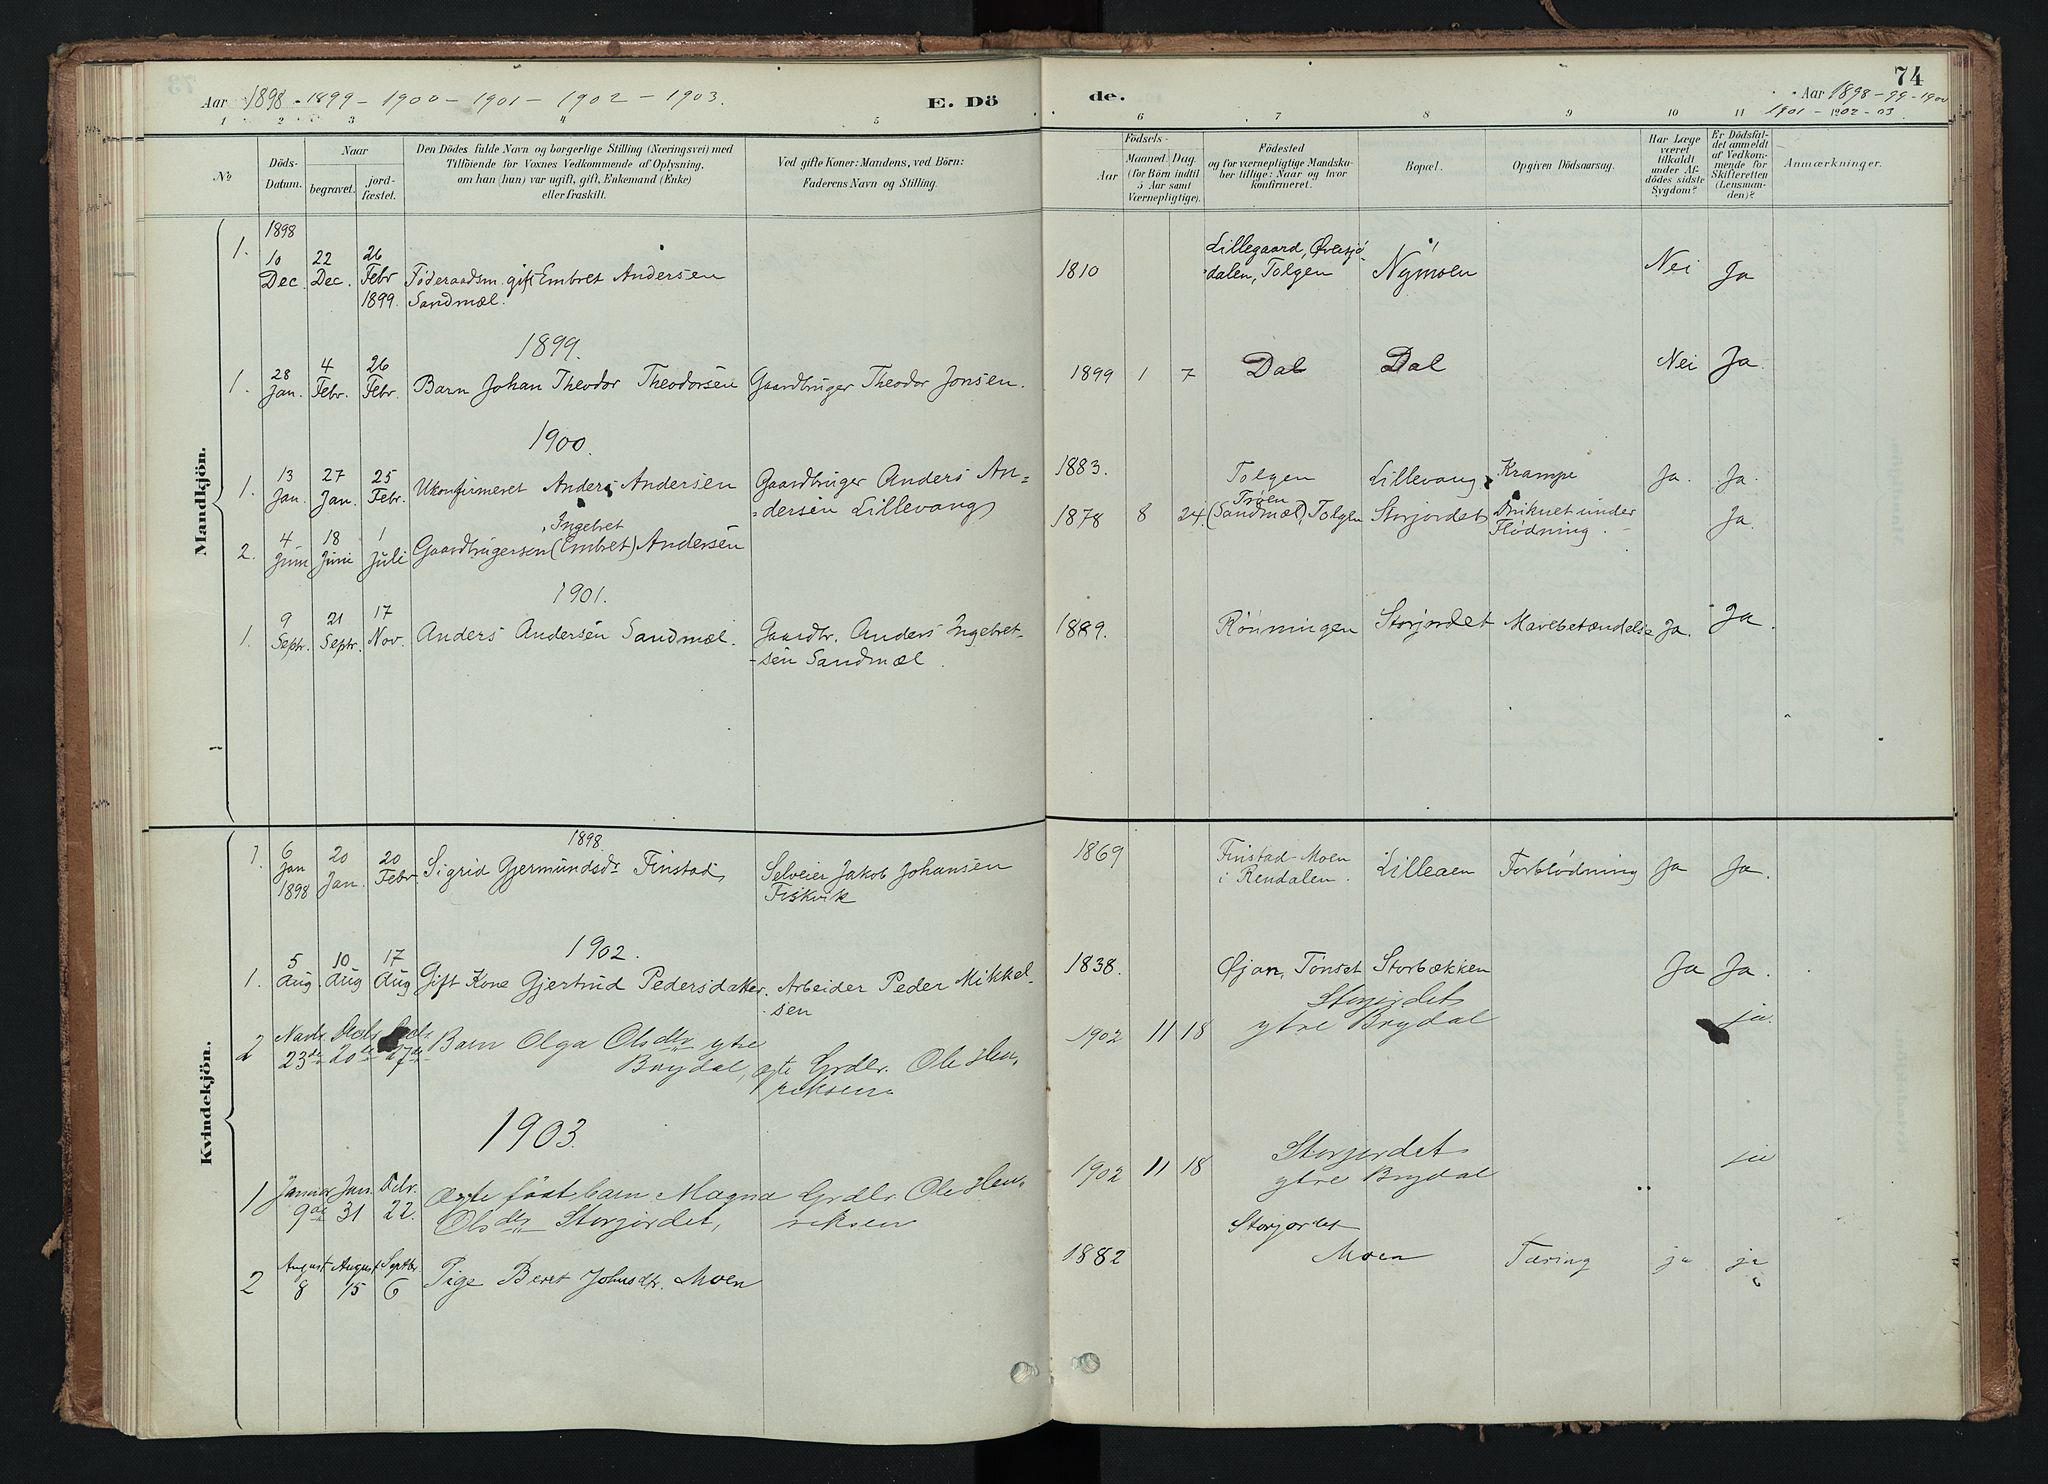 Aar 1898 - 1899 - 1900 - 1901 - 1902 - 1903.
E. Dö
de.
74
Aar 1898 - 99 - 1900
1901 - 1902 - 03.
1 2 3 4 5 6 7 8 9 10 11
No
Döds-
Datum.
Naar
begravet.
jord-
fæstet.
Den Dödes fulde Navn og borgerlige Stilling (Næringsvei) med
Tilföiende for Voxnes Vedkommende af Oplysning,
om han (hun) var ugift, gift, Enkemand (Enke)
eller fraskilt.
Ved gifte Koner: Mandens, ved Börn:
Faderens Navn og Stilling.
Födsels-
Aar
Maaned. Dag.
(for Börn indtil
5 Aar samt
Værnepligtige).
Födested
og for værnepligtige Mandska-
ber tillige: Naar og hvor
konfirmeret.
Bopæl.
Opgiven Dödsaarsag.
Har Læge
været
tilkaldt
under Af-
dödes sidste
Sygdom?
Er Dödsfal-
det anmeldt
af Vedkom-
mende for
Skifteretten
(Lensman-
den)?
Anmærkninger.
Mandkjön.
1898
1. 10 Dec. 22 Dec. 26 Febr 1899. Föderaadsm. gift Embret Andersen
Sandmæl.
1810 Lillegaard, Øversjö-
dalen, Tolgen Nymoen Nei Ja
1899.
1. 28 Jan. 4 Febr. 26 Febr. Barn Johan Theodor Theodorsen Gaardbruger Theodor Jonsen.
1899 1 7 Dal Dal Nei Ja.
1900.
1. 13 Jan. 27 Jan. 25 Febr. Ukonfirmeret Anders Andersen Gaardbruger Anders An-
dersen Lillevang
1883. Tolgen Lillevang Krampe Ja. Ja.
2. 4 Juni 18 Juni 1 Juli Gaardbrugersøn (Embret) Andersen
Ingebret
1878 8 24. Trøen
(Sandmæl), Tolgen Storjordet Druknet under
Flødning. Ja.
1901.
1. 9 Septr. 21 Septr. 17 Nov. Anders Andersen Sandmæl. Gaardbr. Anders Ingebret-
sen Sandmæl.
1889. Rönningen Storjordet Mavebetændelse Ja. Ja.
Kvindekjön.
1898
1. 6 Jan 1898 20 Jan. 20 Febr. Sigrid Gjermundsdr Finstad Selveier Jakob Johansen
Fiskvik
1869 Finstad-Moen
i Rendalen. Lilleaen Forblödning Ja Ja.
1902.
1. 5 Aug 10 Aug 17 Aug Gift Kone Gjertrud Pedersdatter. Arbeider Peder Mikkel-
sen
1838. Øjan, Tönset Storbækken Ja Ja.
2 Novbr. 23de Decbr. 20de 27de Barn Olga Olsdtr ytre
Brydal, ægte Grdbr. Ole Hen-
riksen
1902 11 18 Storjordet
ytre Brydal ja.
1903.
1 Januar 9de Jan. 31 Febr. 22. Ægte født barn Magna Grdbr. Ole Hen-
Olsdtr Storjordet, riksen
1902 11 18 Storjordet
ytre Brydal ja
2 August 8 August 15 Septbr. 6 Pige Beret Johnsdtr. Moen
1882 Storjordet
Moen Tæring ja ja